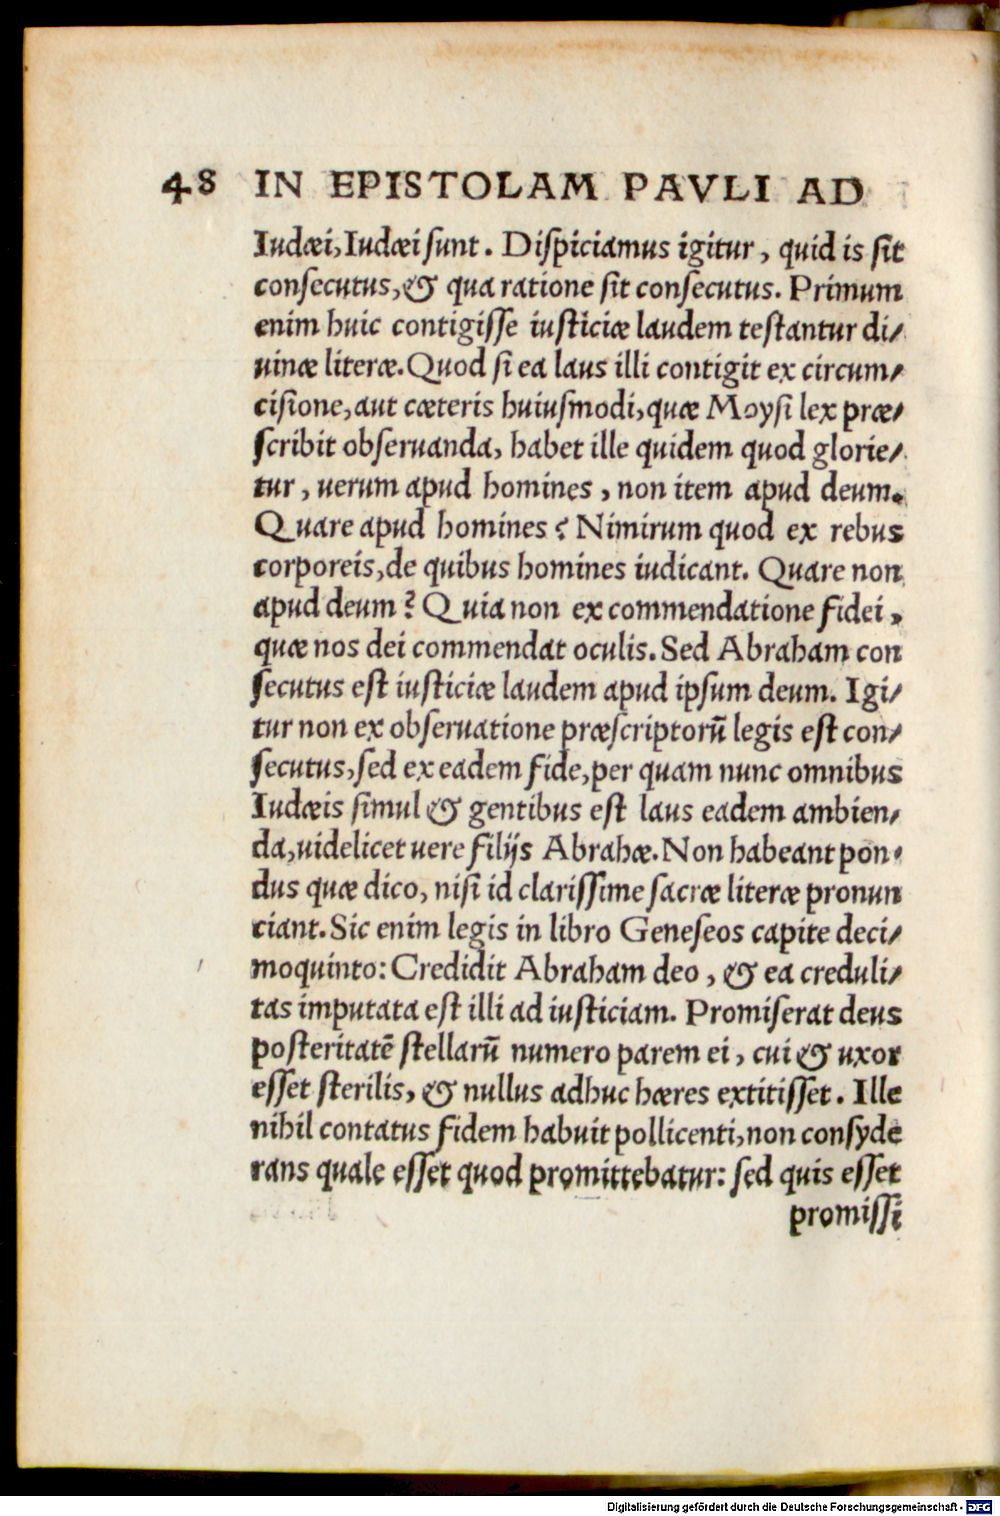 48 IN EPISTOLAM PAVLI AD
Iudæi, Iudæi sunt. Dispiciamus igitur, quid is sit
consecutus, & qua ratione sit consecutus. Primum
enim huic contigisse iusticiæ laudem testantur di/
uinæ literæ. Quod si ea laus illi contigit ex circum/
cisione, aut cæteris huiusmodi, quæ Moysi lex præ/
scribit obseruanda, habet ille quidem quod glorie/
tur, uerum apud homines, non item apud deum.
Quare apud homines? Nimirum quod ex rebus
corporeis, de quibus homines iudicant. Quare non
apud deum? Quia non ex commendatione fidei,
quæ nos dei commendat oculis. Sed Abraham con
secutus est iusticiæ laudem apud ipsum deum. Igi/
tur non ex obseruatione præscriptorũ legis est con/
secutus, sed ex eadem fide, per quam nunc omnibus
Iudæis simul & gentibus est laus eadem ambien/
da, uidelicet uere filijs Abrahæ. Non habeant pon/
dus quæ dico, nisi id clarissime sacræ literæ pronun
ciant. Sic enim legis in libro Geneseos capite deci/
moquinto: Credidit Abraham deo, & ea creduli/
tas imputata est illi ad iusticiam. Promiserat deus
posteritatẽ stellarũ numero parem ei, cui & uxor
esset sterilis, & nullus adhuc hæres extitisset. Ille
nihil contatus fidem habuit pollicenti, non consyde
rans quale esset quod promittebatur: sed quis esset
promissi
Digitalisierung gefördert durch die Deutsche Forschungsgemeinschaft - DFG